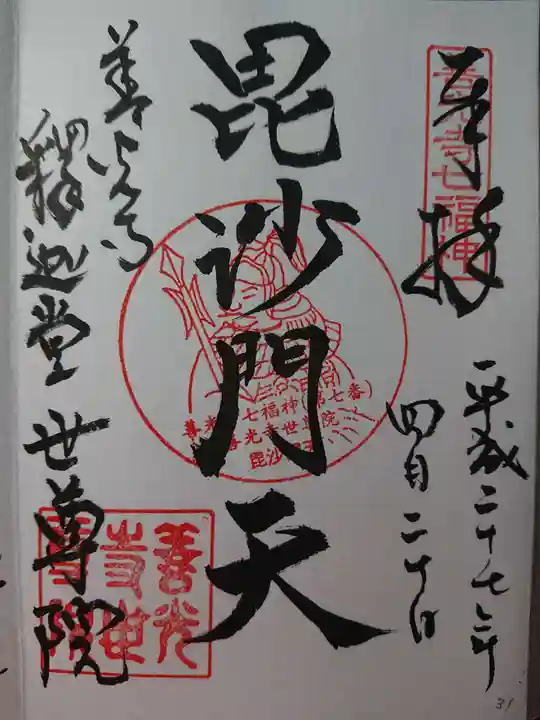 奉拝
善光寺七福神
平成二十七年
四月二十日
毘沙門天
善光寺七福神（第七番）
善光寺世尊院
毘沙門天
善光寺
釋迦堂 世尊院
善光
寺世
尊院
31